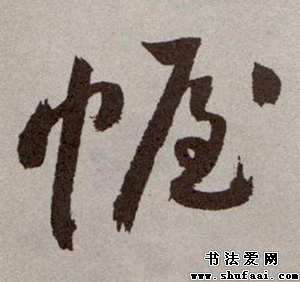 幄
书法爱网
www.shufaai.com